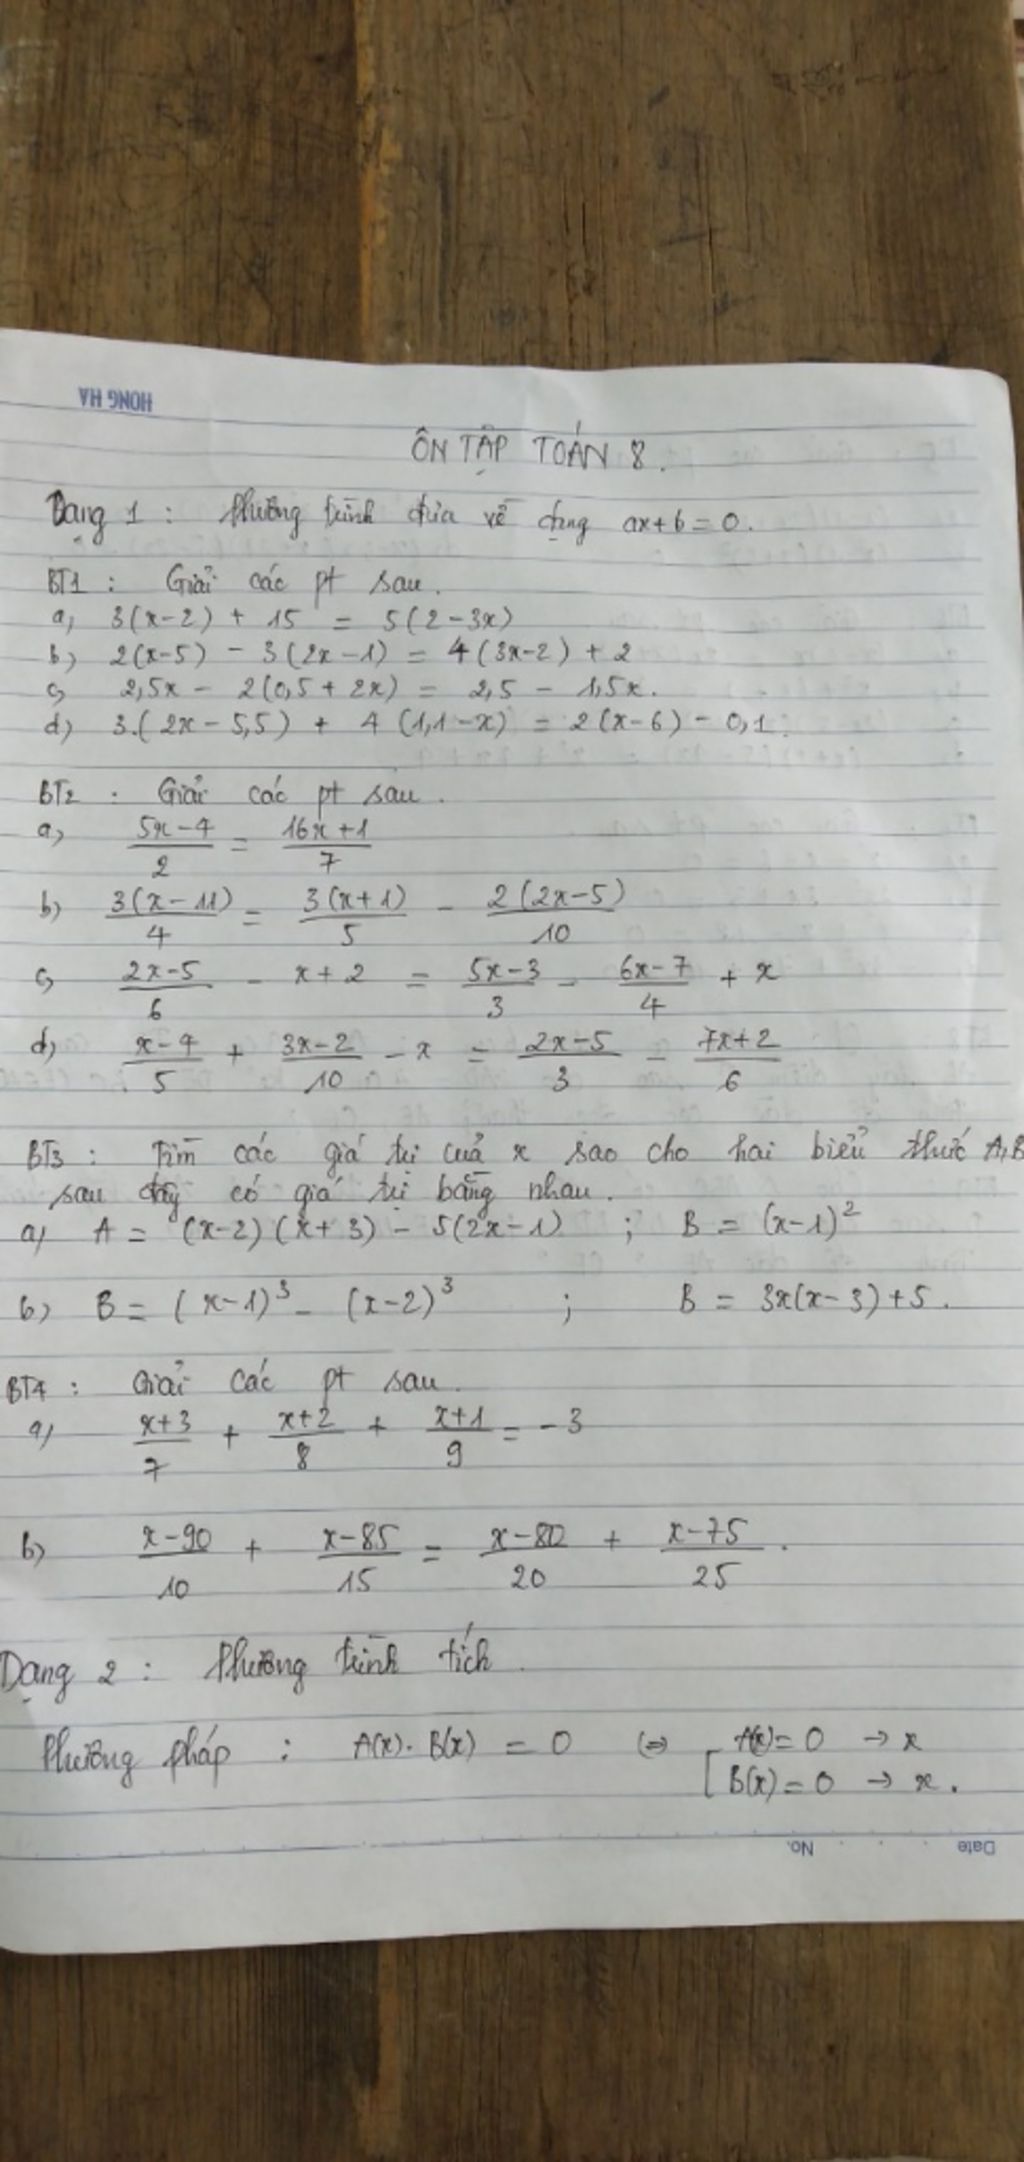 HONG HA
ÔN TẬP TOÁN 8.
Dạng 1 : Phương trình đưa về dạng ax+b=0.
BT1 : Giải các pt sau.
a) 3(x-2) + 15 = 5(2-3x)
b) 2(x-5) - 3(2x-1) = 4(3x-2) + 2
c) 2,5x - 2(0,5 + 2x) = 2,5 - 1,5x.
d) 3.(2x - 5,5) + 4(1,1-x) = 2(x-6) - 0,1.
BT2 : Giải các pt sau.
a) (5x-4)/2 = (16x+1)/7
b) 3(x-11)/4 = 3(x+1)/5 - 2(2x-5)/10
c) (2x-5)/6 - x+2 = (5x-3)/3 - (6x-7)/4 + x
d) (x-4)/5 + (3x-2)/10 - x = (2x-5)/3 - (7x+2)/6
BT3 : Tìm các giá trị của x sao cho hai biểu thức A,B
sau đây có giá trị bằng nhau.
a) A = (x-2)(x+3) - 5(2x-1) ; B = (x-1)²
b) B = (x-1)³ - (x-2)³ ; B = 3x(x-3)+5.
BT4 : Giải các pt sau.
a) (x+3)/7 + (x+2)/8 + (x+1)/9 = -3
b) (x-90)/10 + (x-85)/15 = (x-80)/20 + (x-75)/25.
Dạng 2 : Phương trình tích.
Phương pháp : A(x).B(x) = 0 (=> [ A(x)=0 → x
B(x)=0 → x.
Date No.